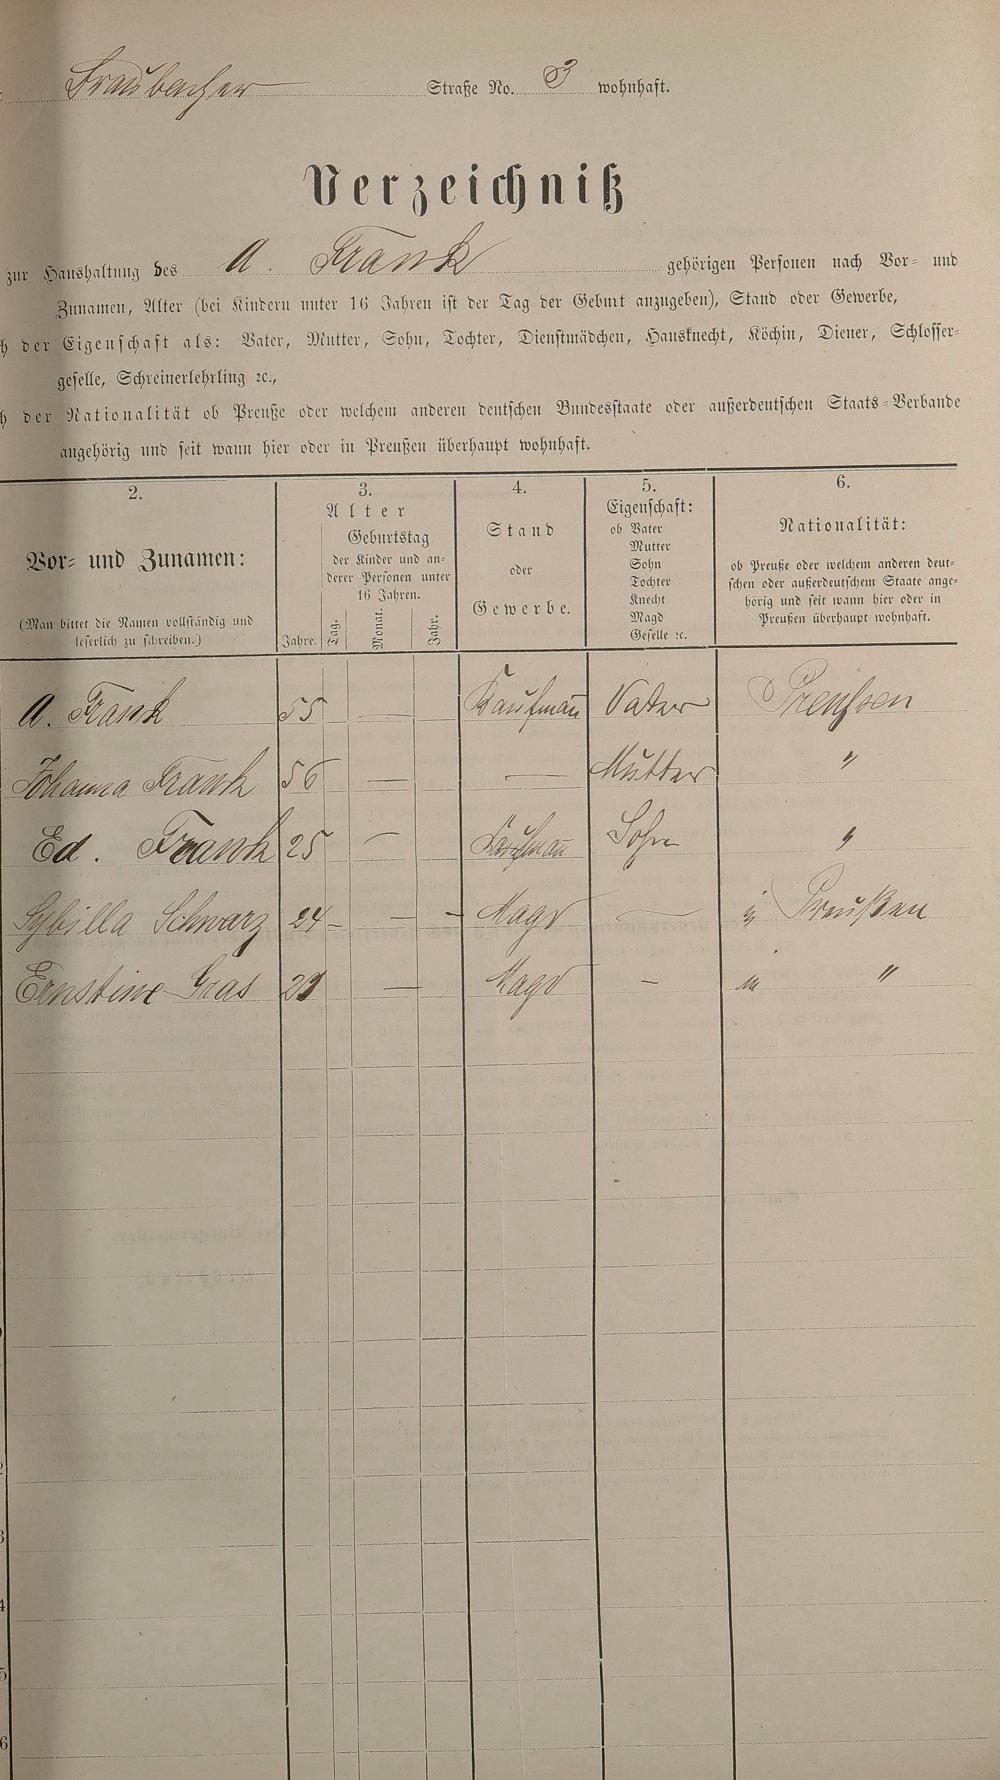 Traubacher Straße No. 3 wohnhaft.
Verzeichniß
zur Haushaltung des A. Frank gehörigen Personen nach Vor- und
Zunamen, Alter (bei Kindern unter 16 Jahren ist der Tag der Geburt anzugeben), Stand oder Gewerbe,
h der Eigenschaft als: Vater, Mutter, Sohn, Tochter, Dienstmädchen, Hausknecht, Köchin, Diener, Schlosser-
geselle, Schreinerlehrling ꝛc.,
h der Nationalität ob Preuße oder welchem anderen deutschen Bundesstaate oder außerdeutschen Staats-Verbande
angehörig und seit wann hier oder in Preußen überhaupt wohnhaft.
2.
Vor- und Zunamen:
(Man bittet die Namen vollständig und
leserlich zu schreiben.)
3.
Alter
Jahre.
Geburtstag
der Kinder und an-
derer Personen unter
16 Jahren.
Tag.
Monat.
Jahr.
4.
Stand
oder
Gewerbe.
5.
Eigenschaft:
ob Vater
Mutter
Sohn
Tochter
Knecht
Magd
Geselle ꝛc.
6.
Nationalität:
ob Preuße oder welchem anderen deut-
schen oder außerdeutschem Staate ange-
hörig und seit wann hier oder in
Preußen überhaupt wohnhaft.
A. Frank 55 — Kaufmañ Vater Preußen
Johanna Frank 56 — — Mutter "
Ed. Frank 25 — Kaufmañ Sohn "
Sybilla Schwarz 24 — — — Magd — in Preußen
Ernstine Gras — Magd — in "
3
4
5
6